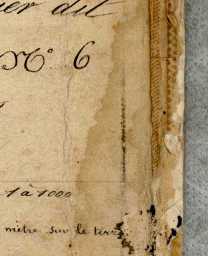 ier dit
N° 6
1 à 1000
mètre sur le